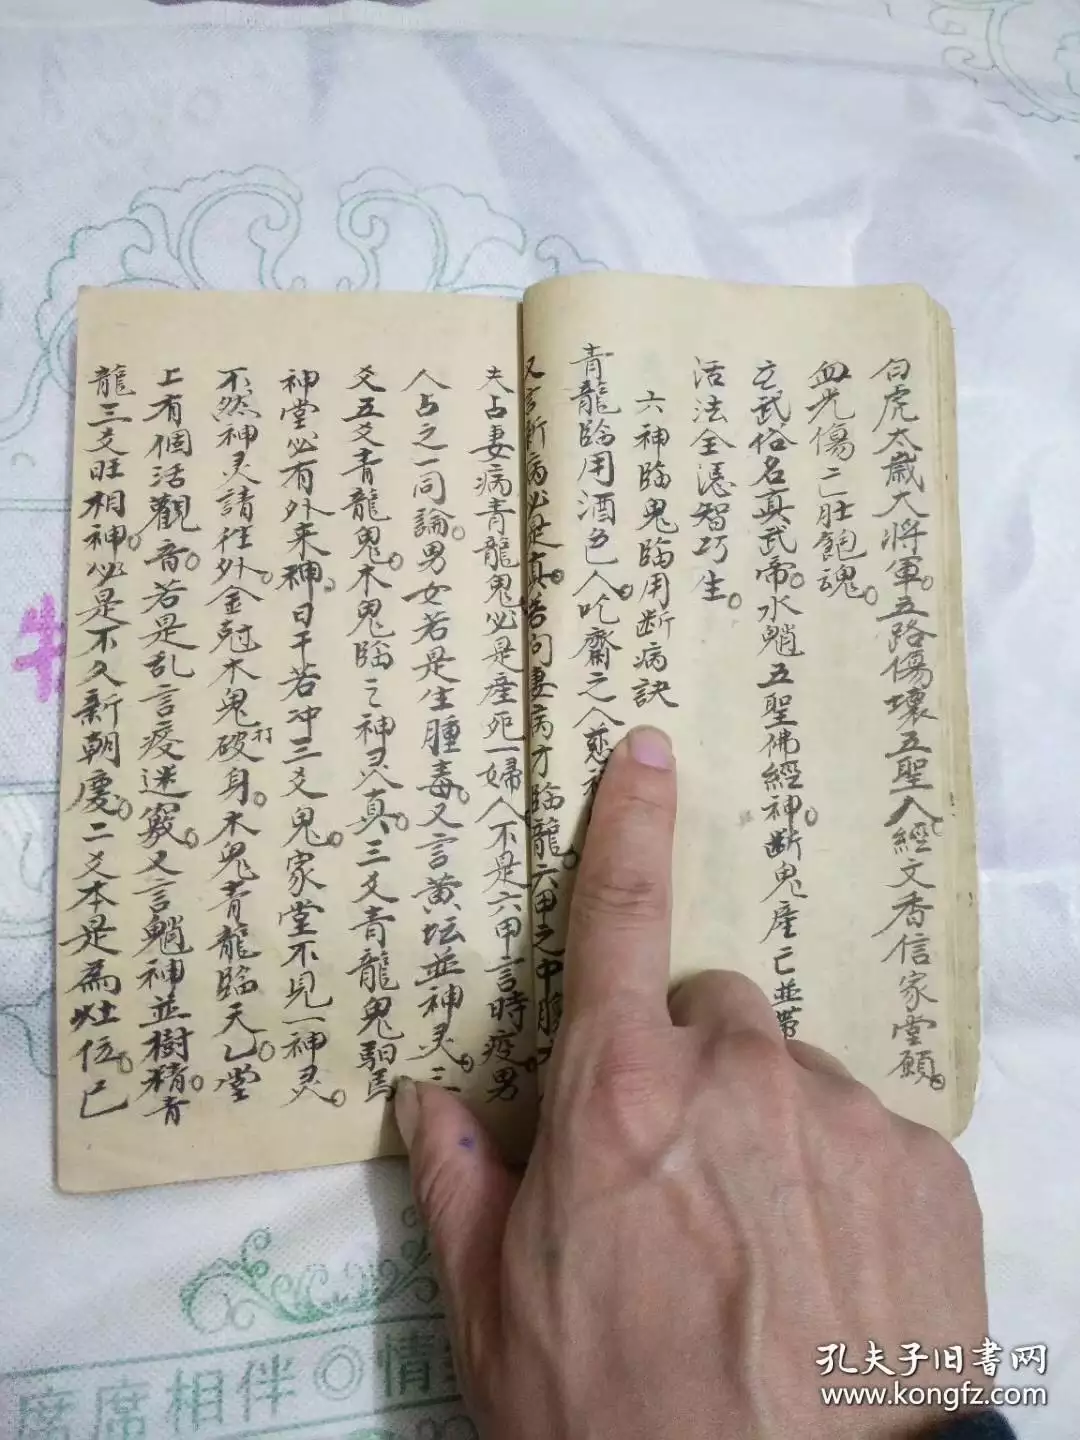 白虎太歲大將軍。五路傷壞五聖入。經文香信家堂願。
血光傷亡肚飽魂。
玄武俗名真武帝。水魈五聖佛經神。斷鬼産亡並帶
活法全憑智巧生。
六神臨鬼臨用断病訣
青龍臨用酒色人。吃齋之人慈
又言新病必是真。若问妻病才臨龍。六甲之中腹
夫占妻病青龍鬼必是産死一婦人不是六甲言時疫男
人占之一同論。男女若是生腫毒。又言黄坛並神灵。三
爻五爻青龍鬼。木鬼臨之神灵真。三爻青龍鬼馹馬
神堂必有外来神。日干若冲三爻鬼。家堂不見一神灵。
不然神灵請往外。金尅木鬼打破身。木鬼青龍臨天乙。堂
上有個活觀音。若是乱言疫迷竅。又言魈神並樹精。青
龍三爻旺相神。必是不久新朝慶。二爻本是為灶位。已
席席相伴◎情
孔夫子旧書网
www.kongfz.com